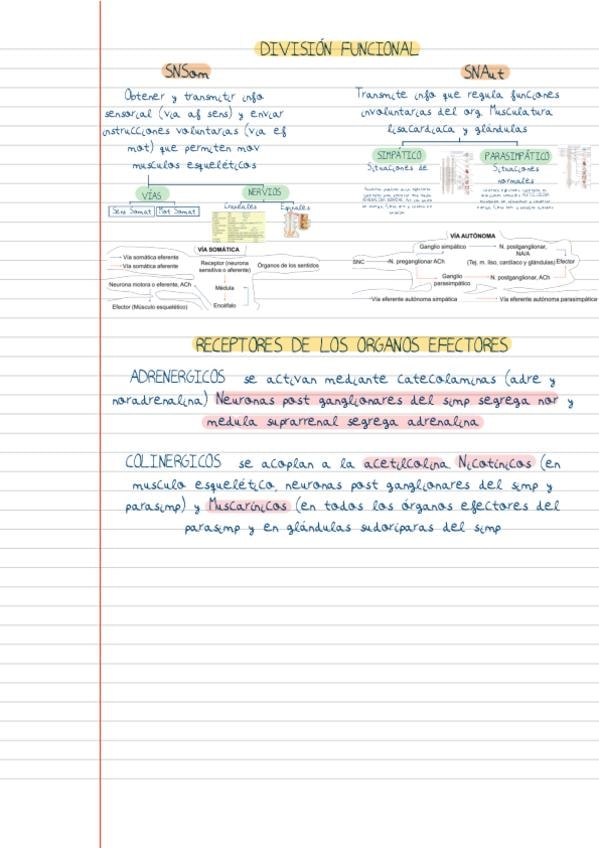 DIVISIÓN FUNCIONAL
SNSom
Obtener y transmitir info
sensorial (via af sens) y enviar
instrucciones voluntarias (via ef
mot) que permiten mov
musculos esqueléticos
VÍAS
NERVIOS
Sens Somat
Mot Somat
Craneales
Espinales
SNAut
Transmite info que regula funciones
involuntarias del org. Musculatura
lisacardiaca y glándulas
SIMPÁTICO
PARASIMPÁTICO
Situaciones de
Situaciones
normales
VÍA SOMÁTICA
Vía somática eferente
Vía somática aferente
Receptor (neurona
sensitiva o aferente)
Órganos de los sentidos
Neurona motora o eferente, ACh
Médula
Efector (Músculo esquelético)
Encéfalo
VÍA AUTÓNOMA
Ganglio simpático
N. postganglionar,
NA/A
SNC
N. preganglionar ACh
(Tej. m. liso, cardíaco y glándulas)
Efector
Ganglio
parasimpático
N. postganglionar, ACh
Vía eferente autónoma simpática
Vía eferente autónoma parasimpática
RECEPTORES DE LOS ORGANOS EFECTORES
ADRENERGICOS se activan mediante catecolaminas (adre y
noradrenalina) Neuronas post ganglionares del simp segrega nor y
medula suprarrenal segrega adrenalina
COLINERGICOS se acoplan a la acetilcolina Nicotínicos (en
musculo esquelético, neuronas post ganglionares del simp y
parasimp) y Muscarínicos (en todos los órganos efectores del
parasimp y en glándulas sudoríparas del simp